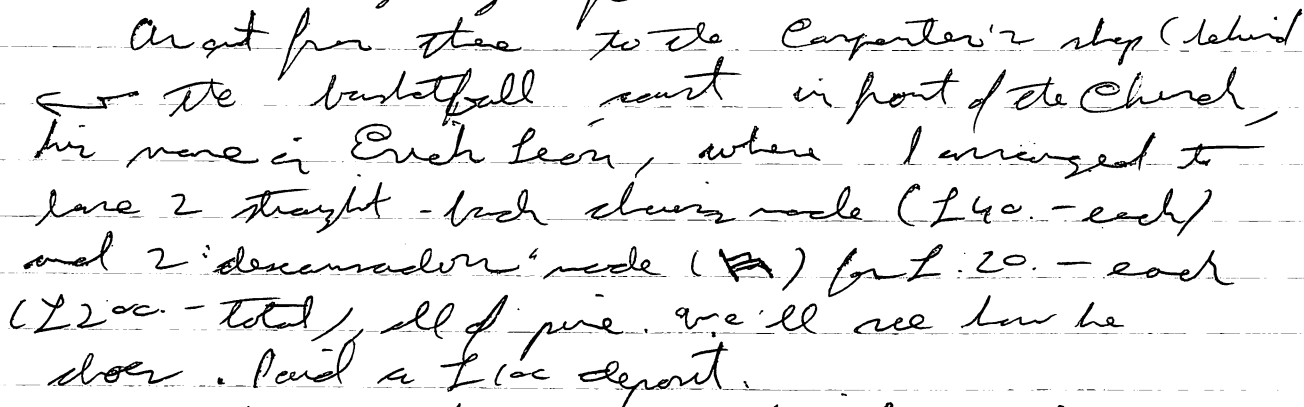 from there to the Carpenter's shop (behind
the basketball court in front of the Church,
his name is Erick Leon, where I arranged to
have 2 straight-back chairs made (L40.- each)
and 2 "descansadors" made ( ) for L.20.- each
(L200.- total), all of pine. We'll see how he
does. Paid a L100 deposit.